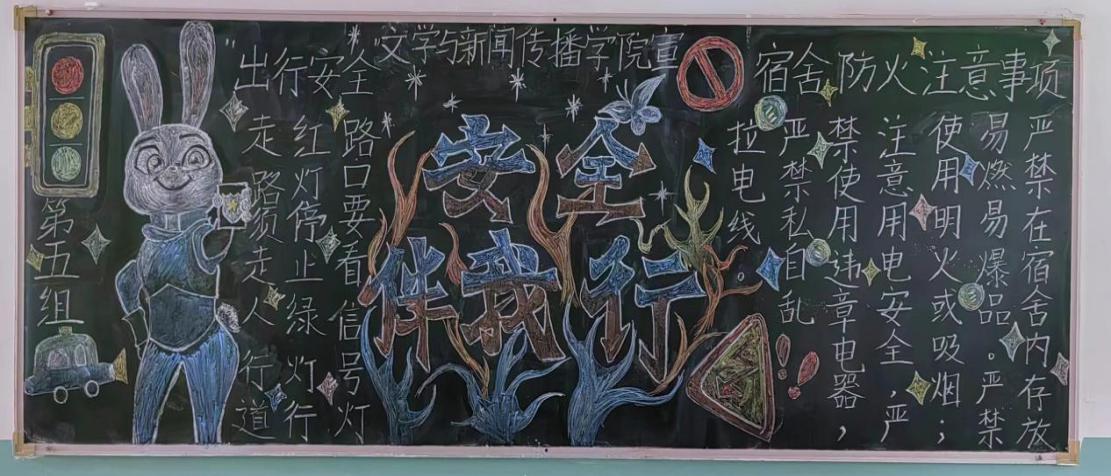 文学与新闻传播学院宣
安全
伴我行
宿舍防火注意事项
严禁在宿舍内存放
易燃易爆品。严禁
使用明火或吸烟；
注意用电安全，严
禁使用违章电器，
严禁私自乱
拉电线。
"出行安全"
路口要看信号灯
红灯停止绿灯行
走路须走人行道
第五组